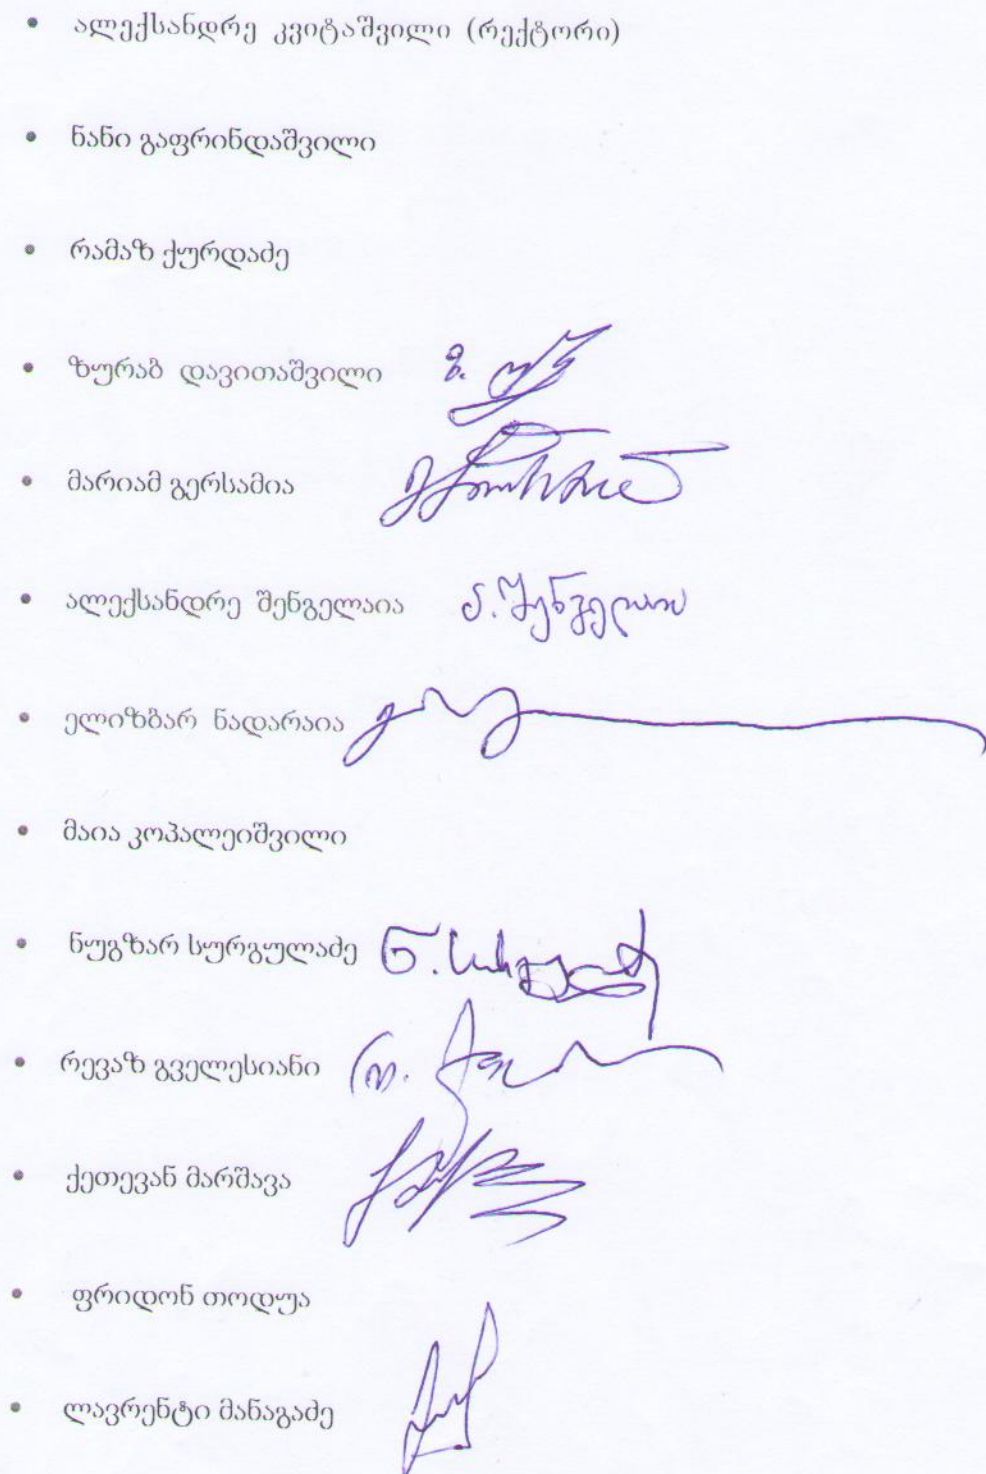 • ალექსანდრე კვიტაშვილი (რექტორი)
• ნანი გაფრინდაშვილი
• რამაზ ქურდაძე
• ზურაბ დავითაშვილი
• მარიამ გერსამია
• ალექსანდრე შენგელაია ა. შენგელაია
• ელიზბარ ნადარაია
• მაია კოპალეიშვილი
• ნუგზარ სურგულაძე
• რევაზ გველესიანი
• ქეთევან მარშავა
• ფრიდონ თოდუა
• ლავრენტი მანაგაძე